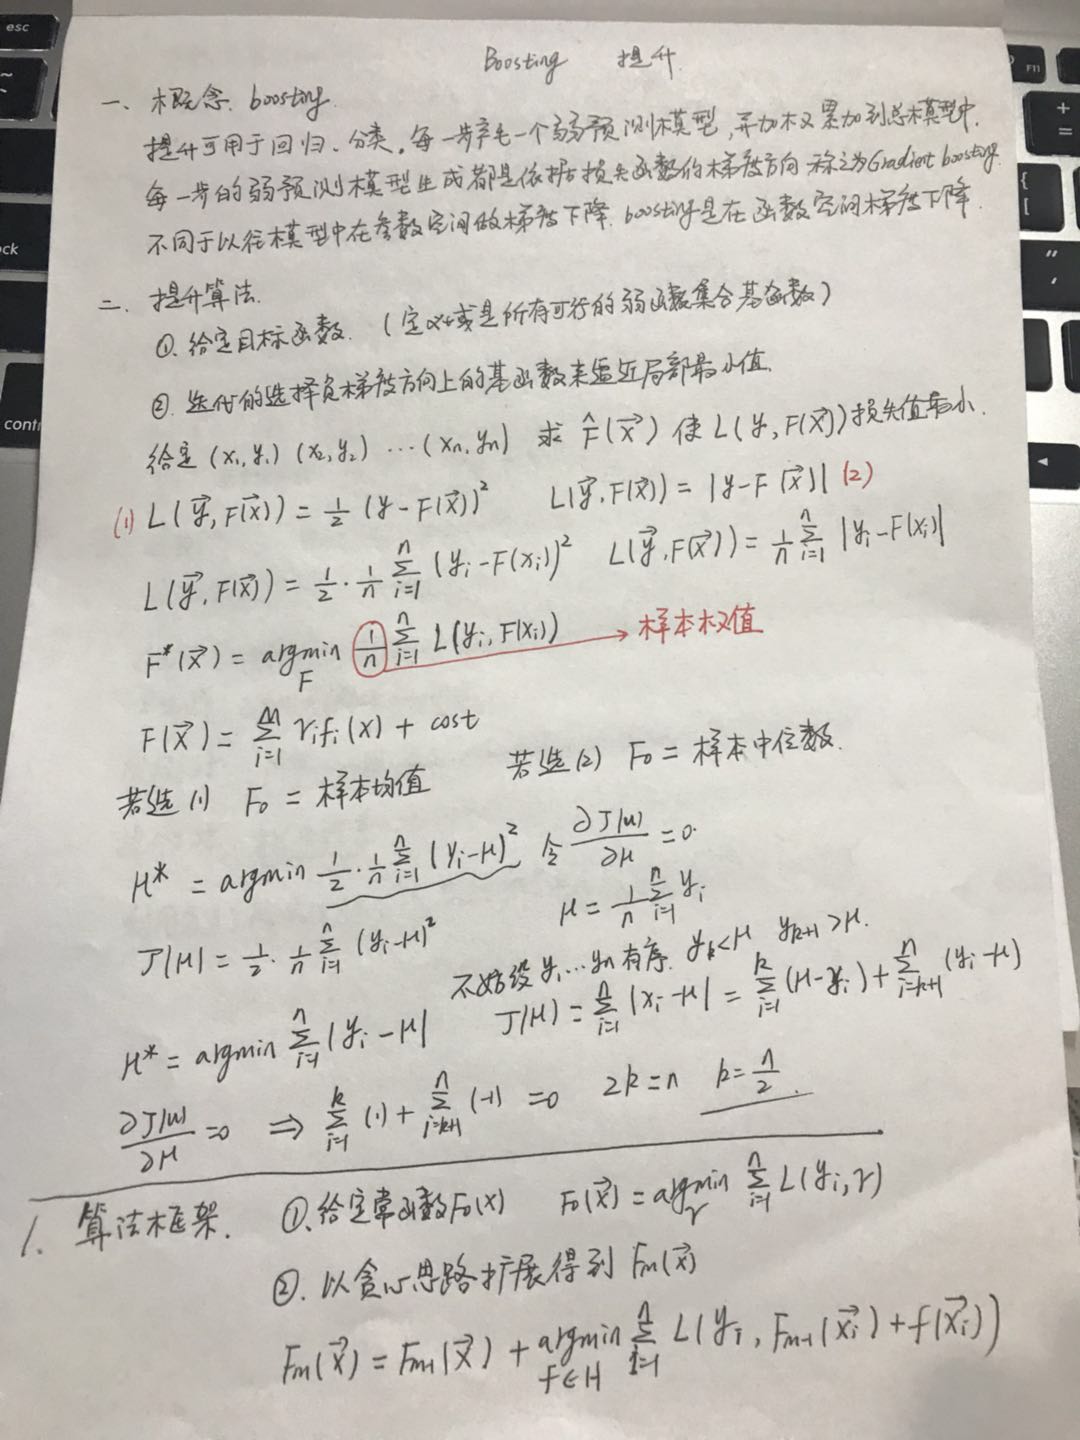 Boosting 提升
一、概念. boosting.
提升可用于回归、分类。每一步产生一个弱预测模型,并加权累加到总模型中.
每一步的弱预测模型生成都是依据损失函数的梯度方向 称之为Gradient boosting.
不同于以往模型中在参数空间做梯度下降. boosting是在函数空间梯度下降.
二、提升算法.
①. 给定目标函数. (定义域是所有可行的弱函数集合基函数)
②. 迭代的选择负梯度方向上的基函数来逼近局部最小值.
给定 (x₁,y₁) (x₂,y₂) ⋯ (xn,yn) 求 F̂(x⃗) 使 L(y, F(x⃗)) 损失值最小.
(1) L(y⃗, F(x⃗)) = 1/2 (y - F(x⃗))² L(y⃗, F(x⃗)) = |y - F(x⃗)| (2)
L(y⃗, F(x⃗)) = 1/2 · 1/n Σ_{i=1}^{n} (yi - F(xi))² L(y⃗, F(x⃗)) = 1/n Σ_{i=1}^{n} |yi - F(xi)|
F*(x⃗) = argmin_F 1/n Σ_{i=1}^{n} L(yi, F(xi)) → 样本权值
F(x⃗) = Σ_{i=1}^{M} γi fi(x) + cost
若选(1) F₀ = 样本均值 若选(2) F₀ = 样本中位数.
μ* = argmin 1/2 · 1/n Σ_{i=1}^{n} (yi - μ)² 令 ∂J(μ)/∂μ = 0.
J(μ) = 1/2 · 1/n Σ_{i=1}^{n} (yi - μ)² μ = 1/n Σ_{i=1}^{n} yi
不妨设 y₁…yn 有序. yk<μ yk+1>μ.
μ* = argmin Σ_{i=1}^{n} |yi - μ| J(μ) = Σ_{i=1}^{n} |xi - μ| = Σ_{i=1}^{k} (μ - yi) + Σ_{i=k+1}^{n} (yi - μ)
∂J(μ)/∂μ = 0 ⇒ Σ_{i=1}^{k} (1) + Σ_{i=k+1}^{n} (-1) = 0 2k = n k = n/2.
1. 算法框架. ①. 给定常函数F₀(x) F₀(x⃗) = argmin_γ Σ_{i=1}^{n} L(yi, γ)
②. 以贪心思路扩展得到 Fm(x⃗)
Fm(x⃗) = Fm-1(x⃗) + argmin_{f∈H} Σ_{i=1}^{n} L(yi, Fm-1(x⃗i) + f(x⃗i))
esc
F11
ock